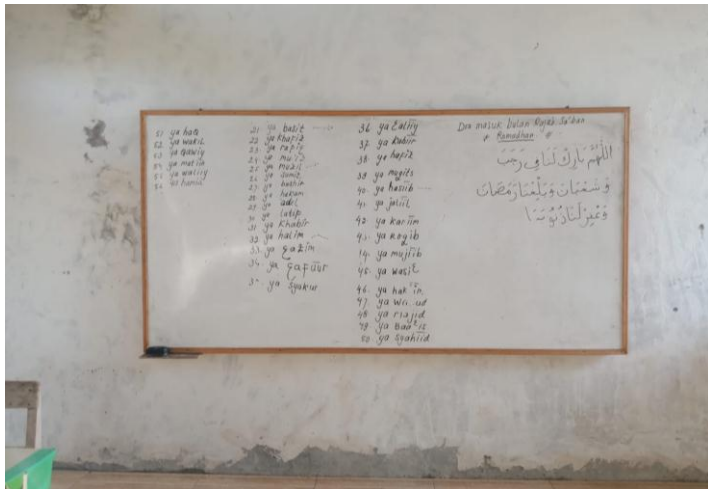 51 ya haq
52 ya wakil
53 ya qawiy
54 ya matiin
55 ya waliiy
56 ya hamid
21 ya basit
22 ya khafid
23 ya rapi'
24 ya mu'iz
25 ya muzil
26 ya sami'
27 ya bashir
28 ya hakam
29 ya adil
30 ya latip
31 ya khabir
32 ya halim
33 ya
34 ya
ya syakur
36 ya
37. ya kabiir
38. ya hapiz
39. ya mugits
40. ya hasiib
41. ya jaliil
42. ya kariim
ya roqib
ya mujiib
45. ya
46. ya hak
47. ya
48. ya majid
49. ya
50. ya syahiid
Doa masuk bulan Rajab Sa'ban
Ramadhan
اللَّهُمَّ بَارِكْ لَنَا فِي رَجَبَ
وَشَعْبَانَ وَبَلِّغْنَا رَمَضَانَ
لَنَا ذُنُوبَنَا